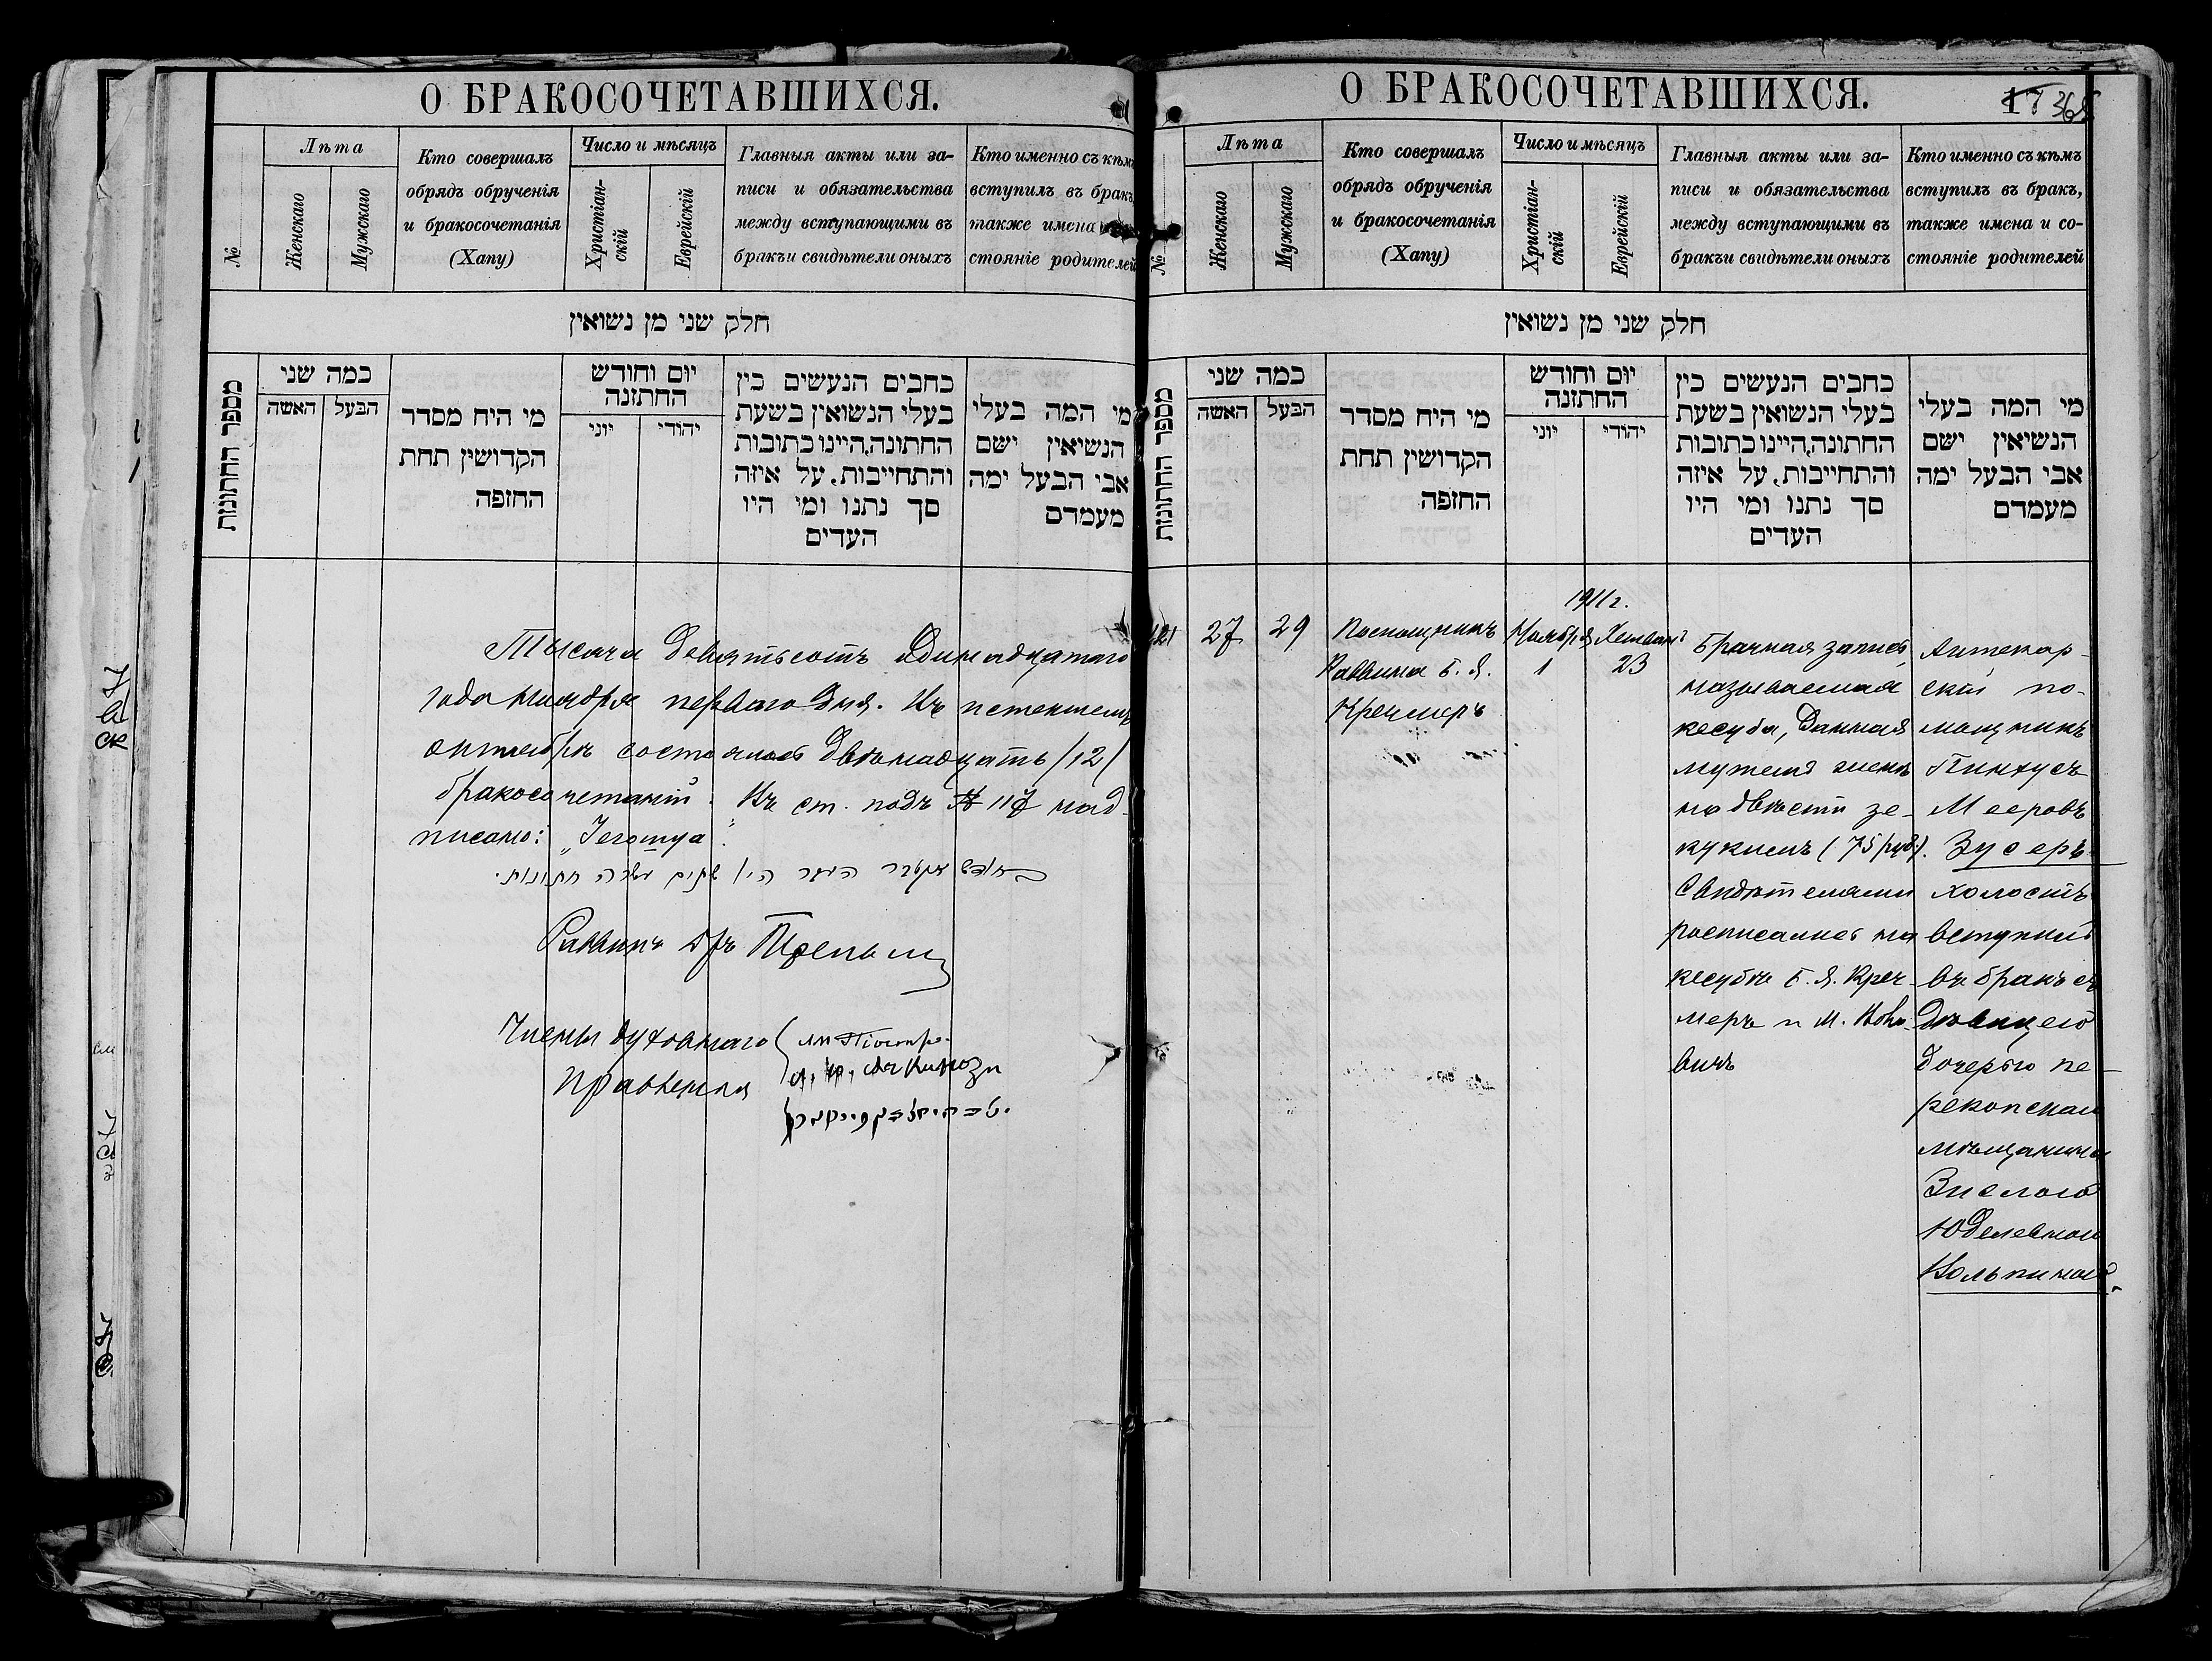 О БРАКОСОЧЕТАВШИХСЯ.
№
Лѣта
Женскаго
Мужскаго
Кто совершалъ
обрядъ обрученія
и бракосочетанія
(Хапу)
Число и мѣсяцъ
Христіан-
скій
Еврейскій
Главныя акты или за-
писи и обязательства
между вступающими въ
бракъ и свидѣтели оныхъ
Кто именно съ кѣмъ
вступилъ въ бракъ,
также имена
стояніе родителей
חלק שני מן נשואין
מספר החתונות
כמה שני
האשה
הבעל
מי היח מסדר
הקדושין תחת
החופה
יום וחודש
החתונה
יוני
יהודי
כתבים הנעשים בין
בעלי הנשואין בשעת
החתונה, היינו כתובות
והתחייבות, על איזה
סך נתנו ומי היו
העדים
מי המה בעלי
הנשיאין ישם
אבי הבעל ימה
מעמדם
Тысяча девятьсотъ одинадцатаго
года ноября перваго дня. Въ истекшемъ
октябрѣ состоялось двѣнадцать /12/
бракосочетаній. Въ ст. подъ № 117 над-
писано: „Іегошуа".
חודש אקטבר העבר היו שתים עשרה חתונות.
Раввинъ Др.
Члены духовнаго
правленія
О БРАКОСОЧЕТАВШИХСЯ.
17 365
№
Лѣта
Женскаго
Мужскаго
Кто совершалъ
обрядъ обрученія
и бракосочетанія
(Хапу)
Число и мѣсяцъ
Христіан-
скій
Еврейскій
Главныя акты или за-
писи и обязательства
между вступающими въ
бракъ и свидѣтели оныхъ
Кто именно съ кѣмъ
вступилъ въ бракъ,
также имена и со-
стояніе родителей
חלק שני מן נשואין
מספר החתונות
כמה שני
האשה
הבעל
מי היח מסדר
הקדושין תחת
החופה
יום וחודש
החתונה
יוני
יהודי
כתבים הנעשים בין
בעלי הנשואין בשעת
החתונה, היינו כתובות
והתחייבות, על איזה
סך נתנו ומי היו
העדים
מי המה בעלי
הנשיאין ישם
אבי הבעל ימה
מעמדם
121
27
29
Помощникъ
Раввина Б. Я.
Кречмеръ
1911 г.
Ноября
1
Хешвонъ
23
Брачная запись,
называемая
кесуба, данная
мужемъ женѣ
на двѣсти зе-
кукимъ (75 руб.).
Свидѣтелями
росписались на
кесубѣ Б. Я. Креч-
меръ и М. Вов-
вичъ
Аптекар-
скій по-
мощникъ
Пинхусъ
Мееровъ
Зусеръ
холостъ
вступилъ
въ бракъ съ
дѣвицею
дочерью пе-
рекопскаго
мѣщанина
Знслою
Юделевною
Вольпиной.